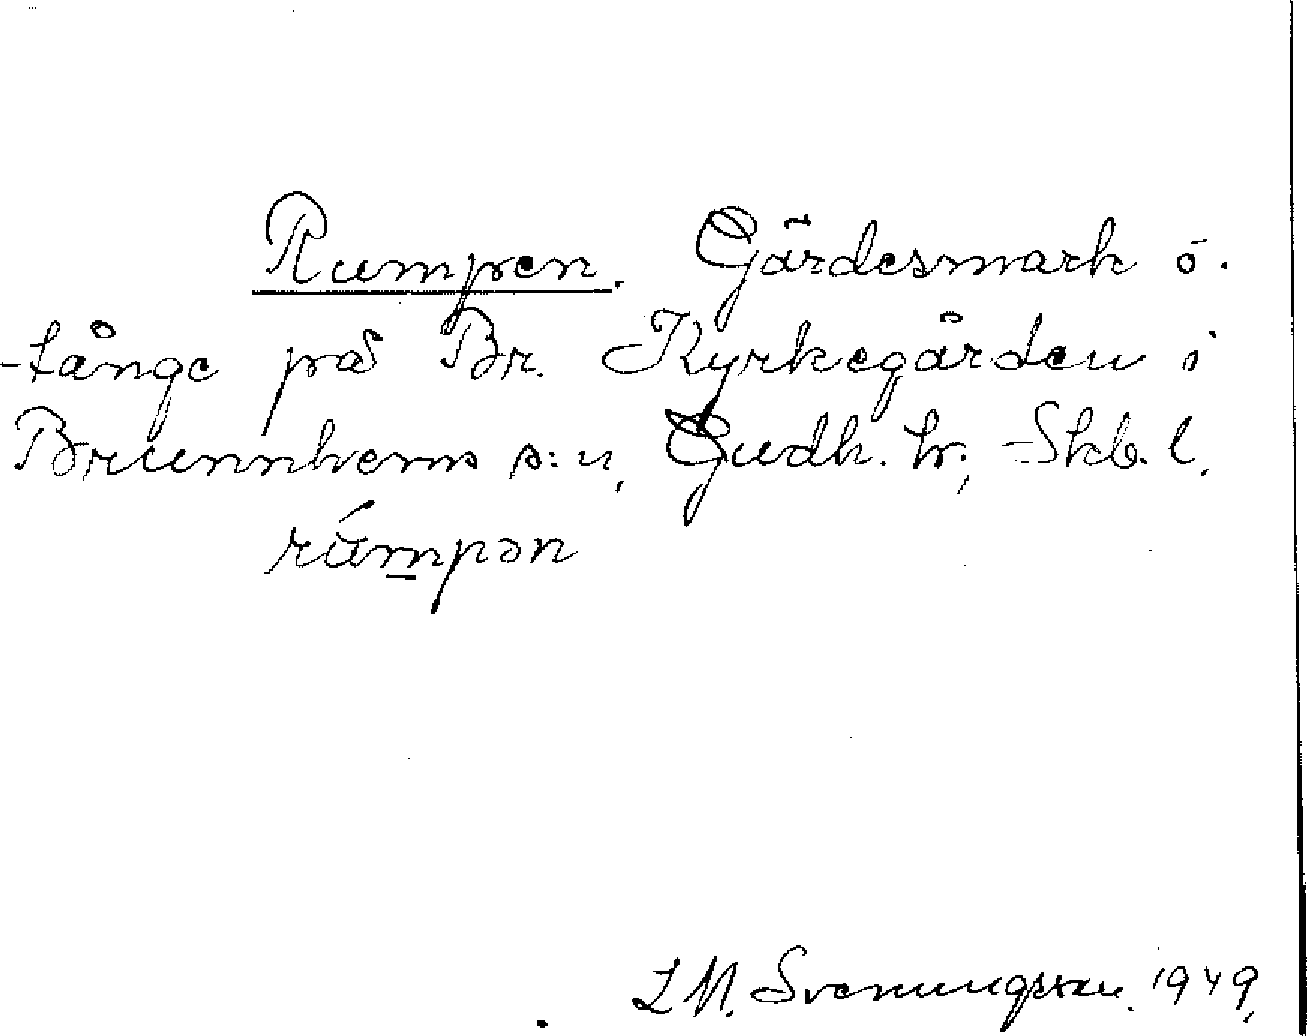 Rumpen. Gärdesmark o.
tånge på Br. Kyrkegården i
Brunnhems s:n, Gudh. hr, Skb. l.
rúmpən
L M. Svenungsson. 1949.